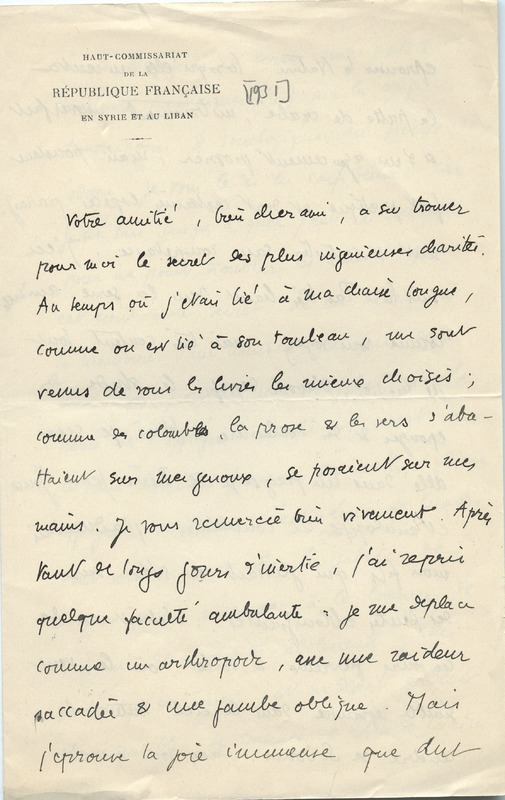 HAUT-COMMISSARIAT
DE LA
RÉPUBLIQUE FRANÇAISE
EN SYRIE ET AU LIBAN
[1931]
Votre amitié, bien cher ami, a su trouver
pour moi le secret des plus ingénieuses charités.
Au temps où j'étais lié à ma chaise longue,
comme on est lié à son tombeau, me sont
venus de vous les livres les mieux choisis ;
comme des colombes, la prose & les vers s'aba-
ttaient sur mes genoux, se posaient sur mes
mains. Je vous remercie bien vivement. Après
tant de longs jours d'inertie, j'ai repris
quelque faculté ambulante : je me déplace
comme un arthropode, avec une raideur
saccadée & une jambe oblique. Mais
j'éprouve la joie immense que dut